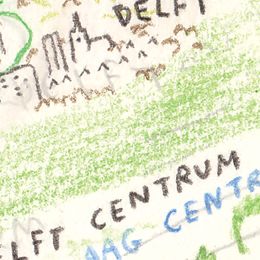 DELFT
ELFT CENTRUM
AAG CENTR